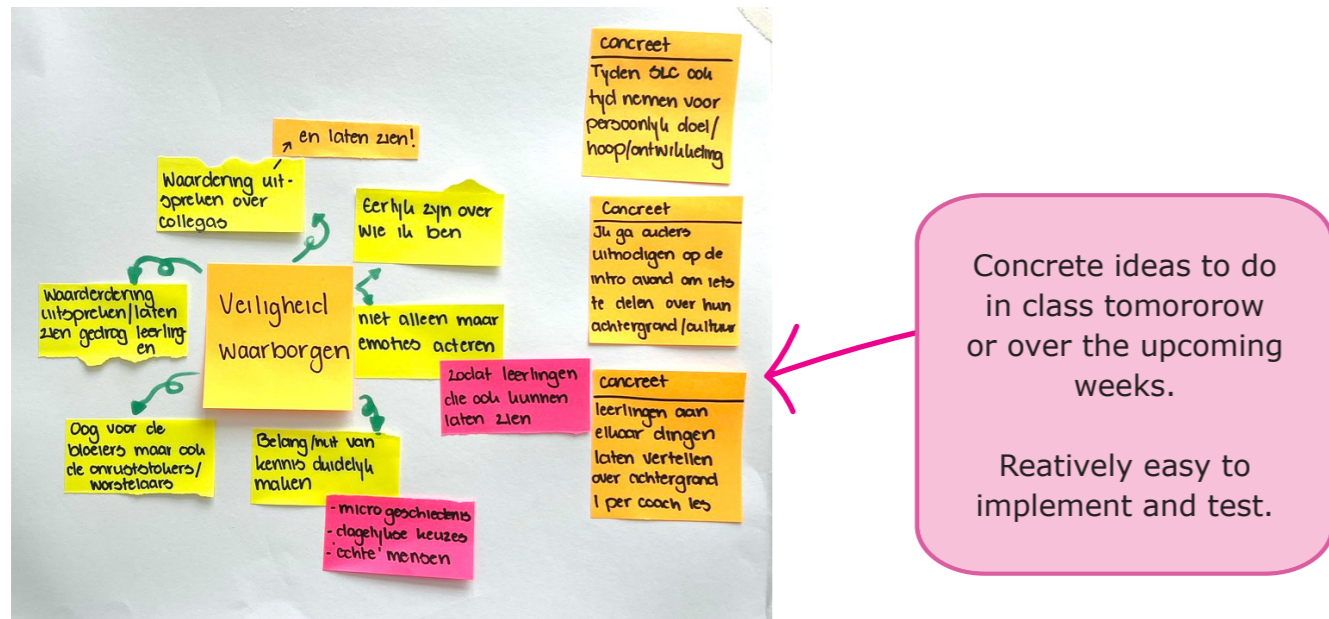 en laten zien!
Waardering uit-
spreken over
collegas
Eerlijk zijn over
wie ik ben
Waarderdering
uitspreken/laten
zien gedrag leerling
en
Veiligheid
waarborgen
niet alleen maar
emoties acteren
zodat leerlingen
die ook kunnen
laten zien
Oog voor de
bloeiers maar ook
de onruststokers/
worstelaars
Belang/nut van
kennis duidelijk
maken
- micro geschiedenis
- dagelijkse keuzes
- 'echte' mensen
concreet
Tijden SLC ook
tijd nemen voor
persoonlijk doel/
hoop/ontwikkeling
Concreet
Ik ga ouders
uitnodigen op de
intro avond om iets
te delen over hun
achtergrand/cultuur
concreet
leerlingen aan
elkaar dingen
laten vertellen
over achtergrond
1 per coach les
Concrete ideas to do
in class tomororow
or over the upcoming
weeks.
Reatively easy to
implement and test.